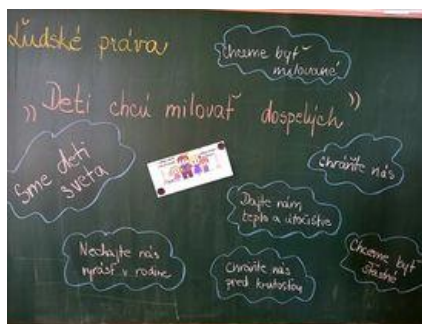 Ľudské práva
Chceme byť
milované
„Deti chcú milovať dospelých"
Sme deti
sveta
Chráňte nás
Dajte nám
teplo a útočište
Nechajte nás
vyrásť v rodine
Chráňte nás
pred krutosťou
Chceme byť
šťastné